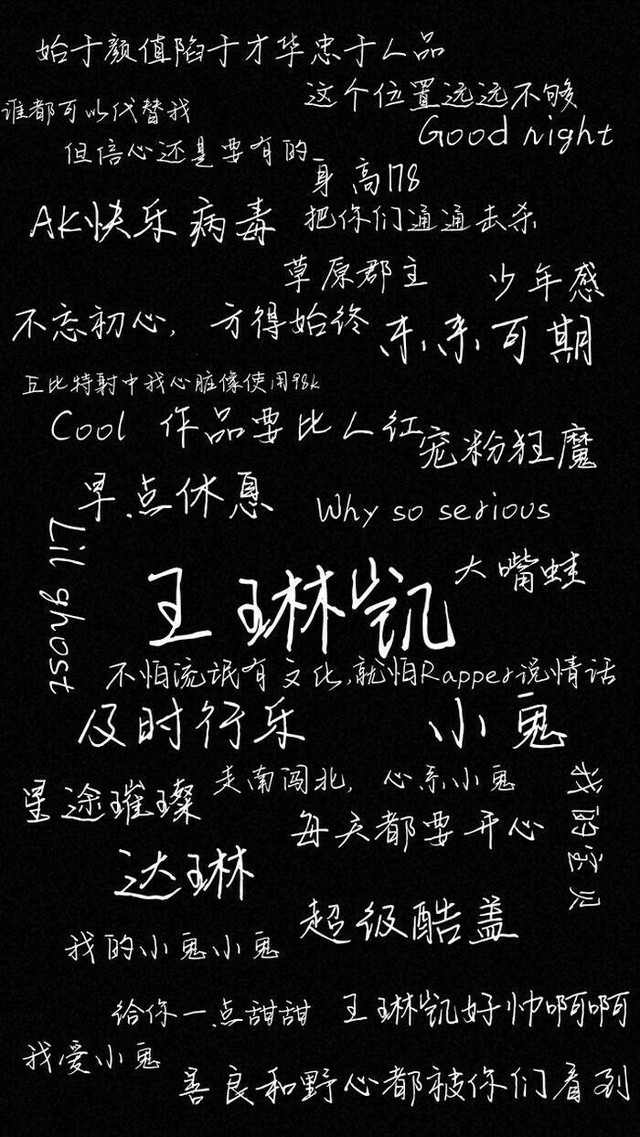 始于颜值陷于才华忠于人品
这个位置远远不够
谁都可以代替我
Good night
但倍心还是要有的
身高178
AK快乐病毒
把你们通通击杀
草原郡主
少年感
不忘初心，方得始终
未来可期
丘比特射中我心脏像使用98k
Cool
作品要比人红
宠粉狂魔
早点休息
Why so serious
Lil ghost
大嘴蛙
王琳凯
不怕流氓有文化,就怕Rapper说情话
及时行乐
小鬼
走南闯北，心系小鬼
星途璀璨
我的宝贝
每天都要开心
达琳
超级酷盖
我的小鬼小鬼
给你一点甜甜
王琳凯好帅啊啊
我爱小鬼
善良和野心都被你们看到